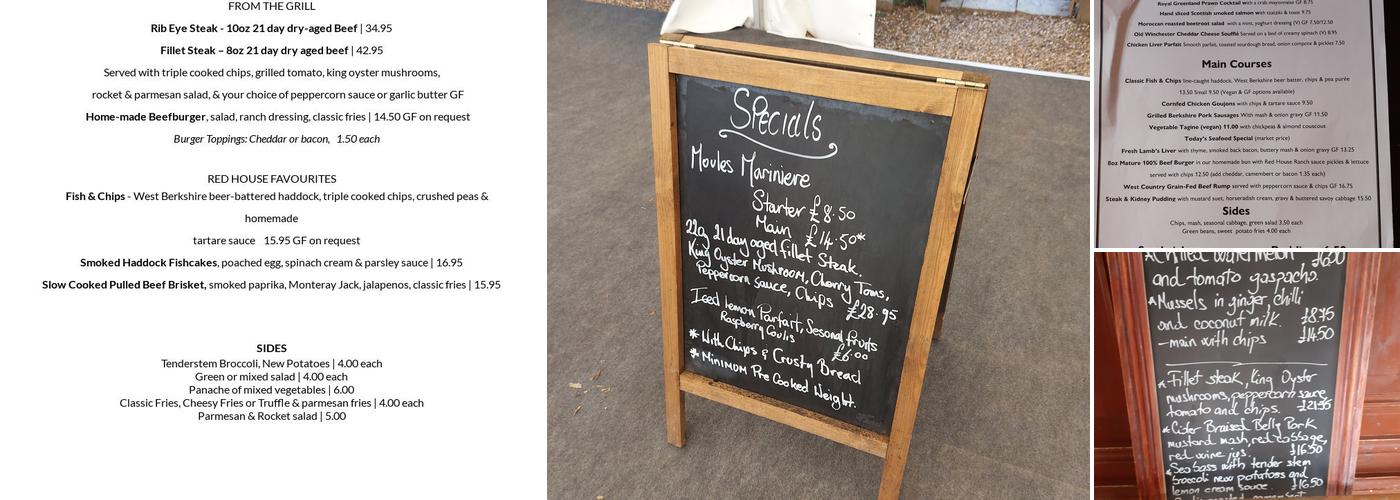 FROM THE GRILL
Rib Eye Steak - 10oz 21 day dry-aged Beef | 34.95
Fillet Steak – 8oz 21 day dry aged beef | 42.95
Served with triple cooked chips, grilled tomato, king oyster mushrooms,
rocket & parmesan salad, & your choice of peppercorn sauce or garlic butter GF
Home-made Beefburger, salad, ranch dressing, classic fries | 14.50 GF on request
Burger Toppings: Cheddar or bacon, 1.50 each
RED HOUSE FAVOURITES
Fish & Chips - West Berkshire beer-battered haddock, triple cooked chips, crushed peas &
homemade
tartare sauce 15.95 GF on request
Smoked Haddock Fishcakes, poached egg, spinach cream & parsley sauce | 16.95
Slow Cooked Pulled Beef Brisket, smoked paprika, Monteray Jack, jalapenos, classic fries | 15.95
SIDES
Tenderstem Broccoli, New Potatoes | 4.00 each
Green or mixed salad | 4.00 each
Panache of mixed vegetables | 6.00
Classic Fries, Cheesy Fries or Truffle & parmesan fries | 4.00 each
Parmesan & Rocket salad | 5.00
Specials
Moules Mariniere
Starter £8.50
Main £14.50*
22oz 21 day aged fillet Steak.
King Oyster Mushroom, Cherry Toms,
Peppercorn Sauce, Chips £28.95
Iced lemon Parfait, Sesonal fruits
Raspberry Coulis £6.00
* With Chips & Crusty Bread
* Minimum Pre Cooked Weight.
Royal Greenland Prawn Cocktail with a crab mayonnaise GF 8.75
Hand sliced Scottish smoked salmon with tzatziki & toast 9.75
Moroccan roasted beetroot salad with a mint, yoghurt dressing (V) GF 7.50/12.50
Old Winchester Cheddar Cheese Soufflé Served on a bed of creamy spinach (V) 8.95
Chicken Liver Parfait Smooth parfait, toasted sourdough bread, onion compote & pickles 7.50
Main Courses
Classic Fish & Chips line-caught haddock, West Berkshire beer batter, chips & pea purée
13.50 Small 9.50 (Vegan & GF options available)
Cornfed Chicken Goujons with chips & tartare sauce 9.50
Grilled Berkshire Pork Sausages With mash & onion gravy GF 11.50
Vegetable Tagine (vegan) 11.00 with chickpeas & almond couscous
Today's Seafood Special (market price)
Fresh Lamb's Liver with thyme, smoked back bacon, buttery mash & onion gravy GF 13.25
8oz Mature 100% Beef Burger in our homemade bun with Red House Ranch sauce pickles & lettuce
served with chips 12.50 (add cheddar, camembert or bacon 1.35 each)
West Country Grain-Fed Beef Rump served with peppercorn sauce & chips GF 16.75
Steak & Kidney Pudding with mustard suet, horseradish cream, gravy & buttered savoy cabbage 15.50
Sides
Chips, mash, seasonal cabbage, green salad 3.50 each
Green beans, sweet potato fries 4.00 each
*Chilled watermelon £6.00
and tomato gaspacho.
*Mussels in ginger, chilli
and coconut milk. £8.75
-main with chips £14.50
*Fillet steak, King Oyster
mushrooms, peppercorn sauce,
tomato and chips. £21.95
*Cider Braised Belly Pork
mustard mash, red cabbage,
red wine jus. £16.50
*Sea bass with tender stem
broccoli new potatoes and
lemon cream sauce. £16.50